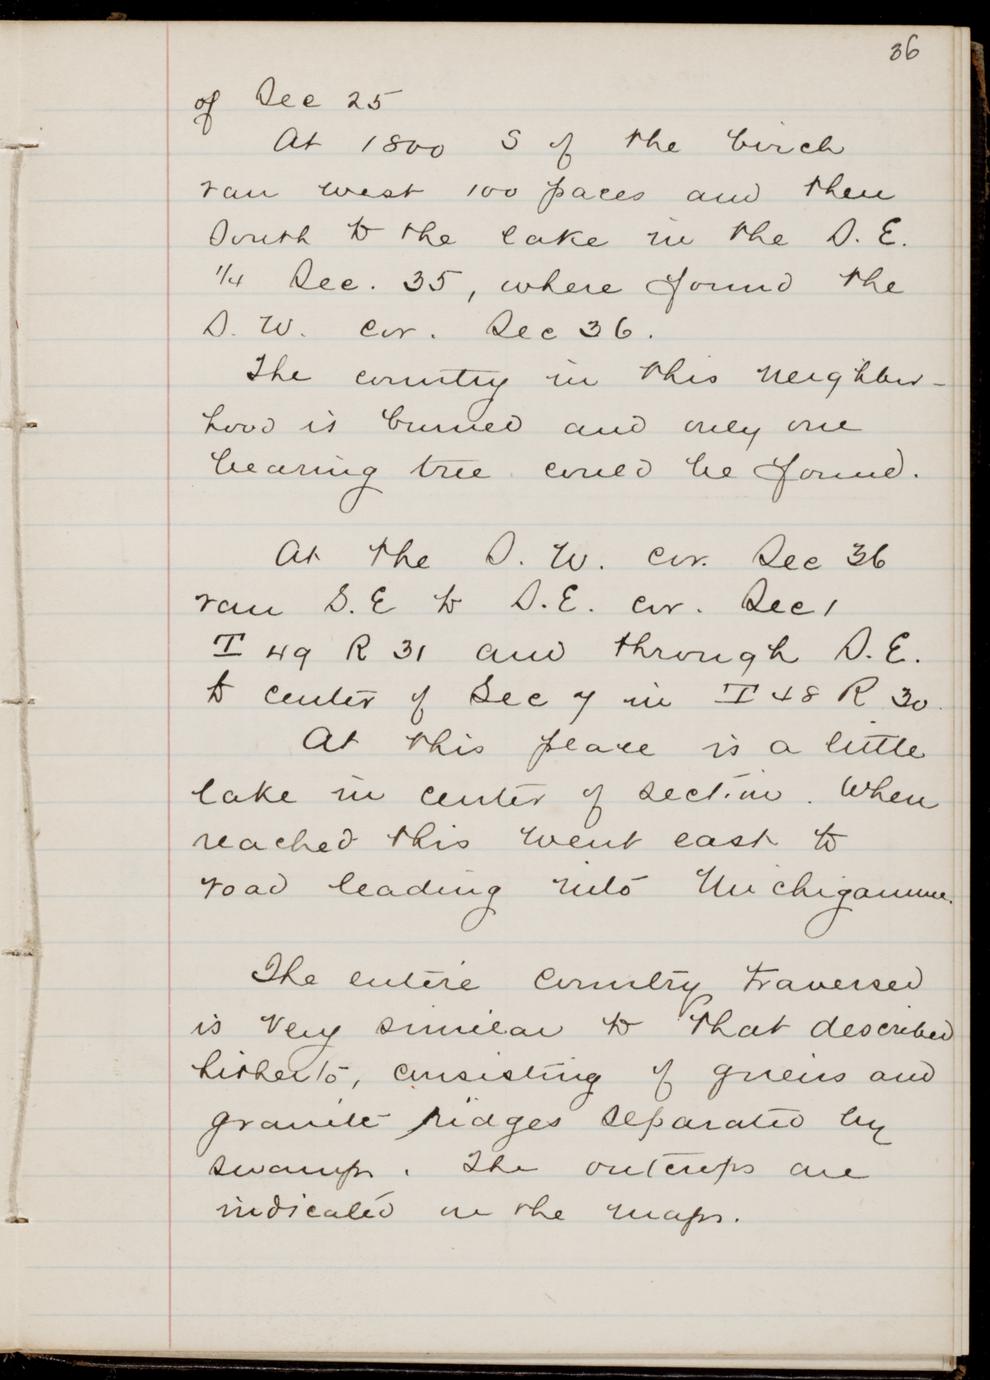 36
of Sec 25
At 1800 S of the birch
ran west 100 paces and then
South to the lake in the S. E.
1/4 Sec. 35, where found the
S. W. cor. Sec 36.
The country in this neighbor-
hood is burned and only one
bearing tree could be found.
At the S. W. cor. Sec 36
ran S. E to S. E. cor. Sec 1
T 49 R 31 and through S. E.
to center of Sec 7 in T 48 R 30.
At this place is a little
lake in center of section. When
reached this went east to
road leading into Michigamme.
The entire country traversed
is very similar to that described
hitherto, consisting of gneiss and
granite ridges separated by
swamps. The outcrops are
indicated on the maps.